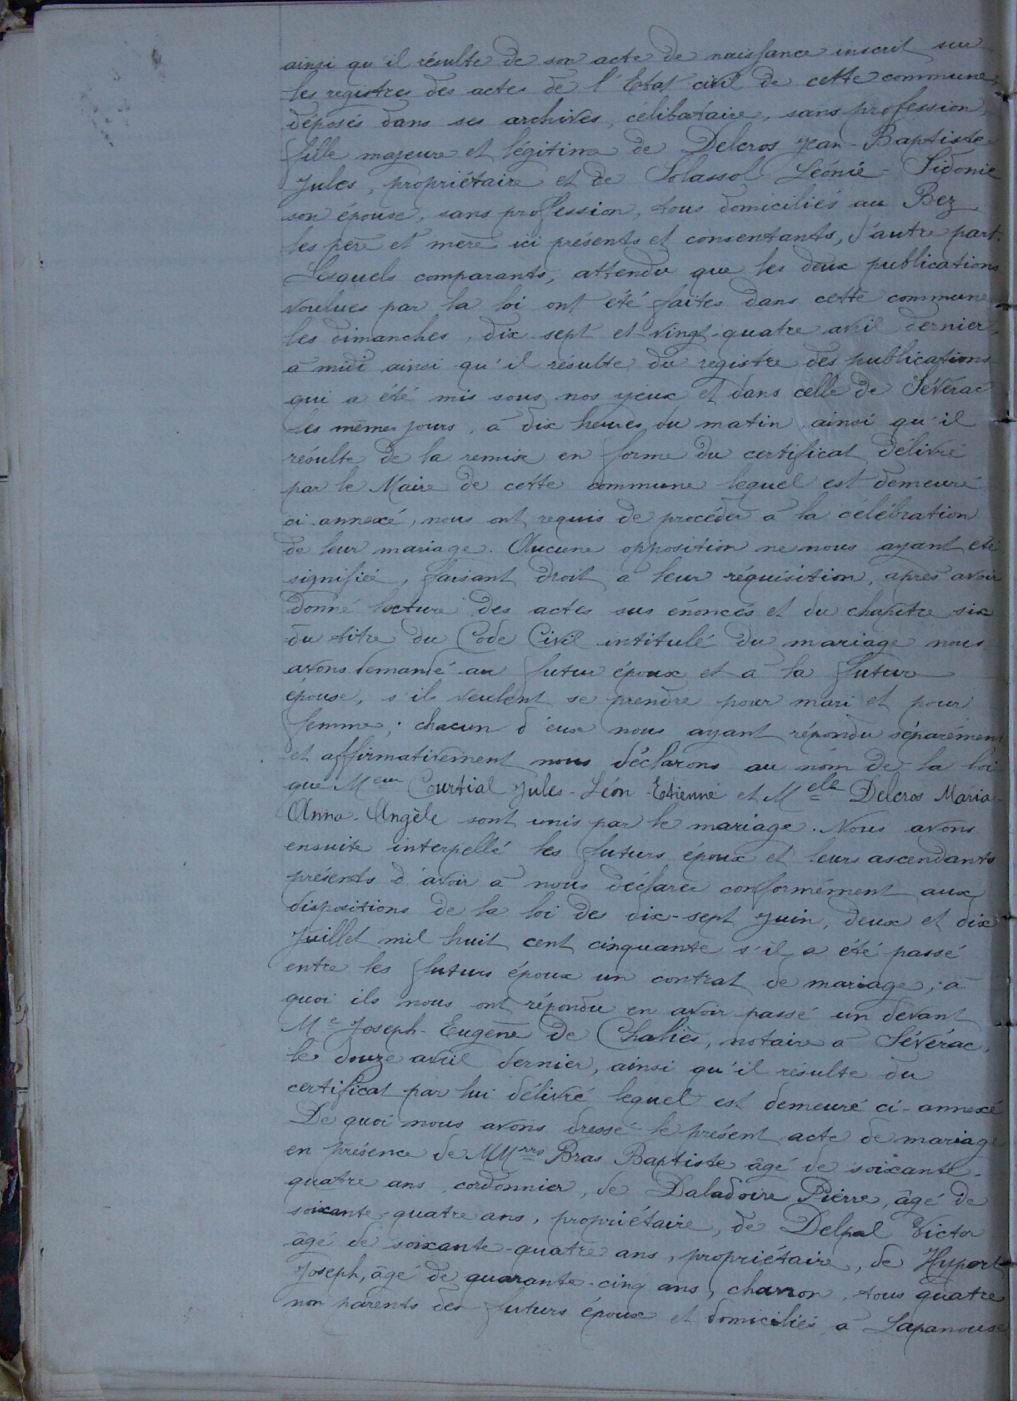 ainsi qu'il résulte de son acte de naissance inscrit sur
les registres des actes de l'Etat civil de cette commune,
déposés dans ses archives, célibataire, sans profession,
fille majeure et légitime de Delcros Jean-Baptiste
Jules, propriétaire et de Solassol Léonie-Sidonie
son épouse, sans profession, tous domiciliés au Bez
les père et mère ici présents et consentants, d'autre part.
Lesquels comparants, attendu que les deux publications
voulues par la loi ont été faites dans cette commune
les dimanches, dix sept et vingt-quatre avril dernier,
à midi ainsi qu'il résulte du registre des publications
qui a été mis sous nos yeux et dans celle de Sévérac
les mêmes jours, à dix heures du matin, ainsi qu'il
résulte de la remise en forme du certificat délivré
par le Maire de cette commune lequel est demeuré
ci annexé, nous ont requis de procéder à la célébration
de leur mariage. Aucune opposition ne nous ayant été
signifiée, faisant droit à leur réquisition, après avoir
donné lecture des actes sus énoncés et du chapitre six
du titre du Code Civil intitulé du mariage nous
avons demandé au futur époux et à la future
épouse, s'ils veulent se prendre pour mari et pour
femme; chacun d'eux nous ayant répondu séparément
et affirmativement nous déclarons au nom de la loi
que Meur Courtial Jules-Léon-Etienne et Melle Delcros Maria-
Anna-Angèle sont unis par le mariage. Nous avons
ensuite interpellé les futurs époux et leurs ascendants
présents d'avoir à nous déclarer conformément aux
dispositions de la loi des dix-sept juin, deux et dix
Juillet mil huit cent cinquante s'il a été passé
entre les futurs époux un contrat de mariage; à
quoi ils nous ont répondu en avoir passé un devant
Me Joseph-Eugène de Chaliès, notaire à Sévérac,
le douze avril dernier, ainsi qu'il résulte du
certificat par lui délivré lequel est demeuré ci-annexé
De quoi nous avons dressé le présent acte de mariage
en présence de MMrrs Bras Baptiste âgé de soixante-
quatre ans, cordonnier, de Daladoire Pierre, âgé de
soixante-quatre ans, propriétaire, de Delpal Victor
âgé de soixante-quatre ans, propriétaire, de
Joseph, âgé de quarante-cinq ans, charron, tous quatre
non parents des futurs époux et domiciliés à Lapanouse